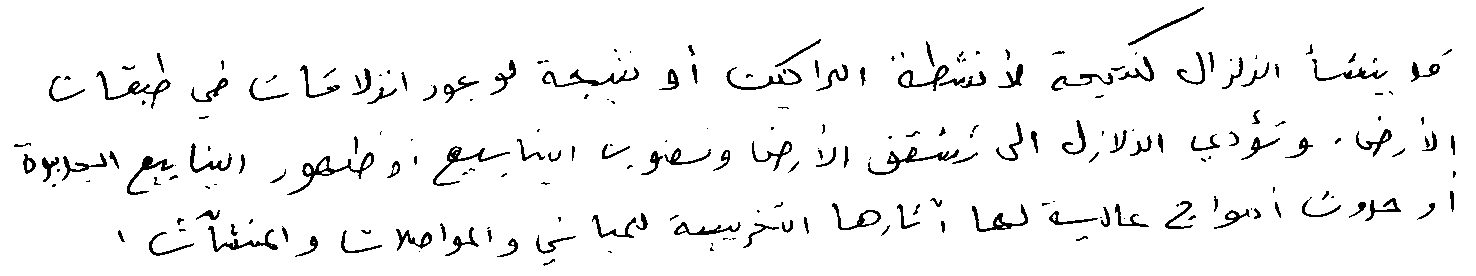 قد ينشأ الزلزال كنتيجة لأنشطة البراكين أو نتيجة لوجود انزلاقات في طبقات
الأرض. وتؤدي الزلازل الى تشقق الأرض ونضوب الينابيع أو ظهور الينابيع الجديدة
أو حدوث أمواج عالية لها آثارها التخريبية للمباني والمواصلات والمنشآت.